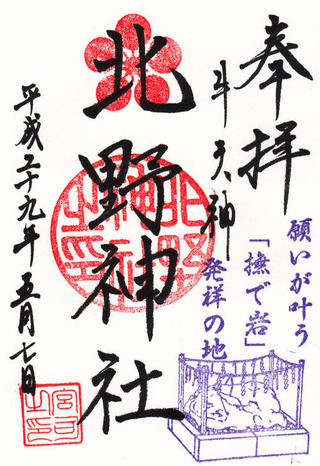 奉拝
牛天神
北野神社
平成二十九年五月七日
願いが叶う
「撫で岩」
発祥の地
北野神社之印
宮司之印